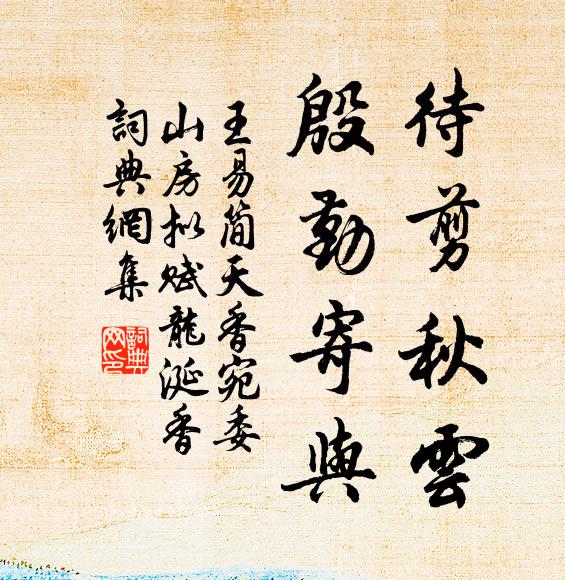 待剪秋雲
殷勤寄與
王易简天香宛委
山房拟赋龍涎香
詞典網集
詞典網印